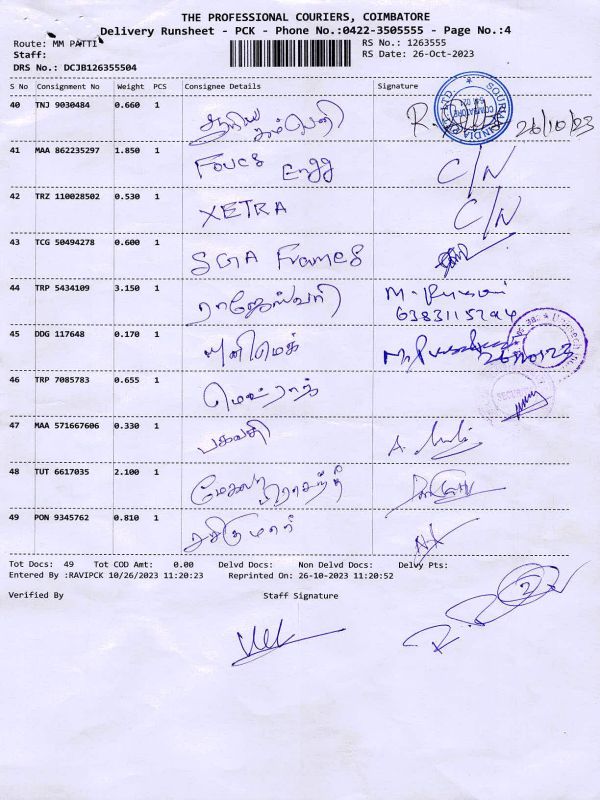 THE PROFESSIONAL COURIERS, COIMBATORE
Delivery Runsheet - PCK - Phone No.:0422-3505555 - Page No.:4
Route: MM PATTI RS No.: 1263555
Staff: RS Date: 26-Oct-2023
DRS No.: DCJB126355504
S No Consignment No Weight PCS Consignee Details Signature
40 TNJ 9030484 0.660 1 26/10/23
41 MAA 862235297 1.850 1 Foucs Engg C/N
42 TRZ 110028502 0.530 1 XETRA C/N
43 TCG 50494278 0.600 1 SGA Frames
44 TRP 5434109 3.150 1 ராஜேஸ்வரி M.
6383115294
45 DDG 117648 0.170 1 யுனிமெக்
46 TRP 7085783 0.655 1
47 MAA 571667606 0.330 1 பகவதி A.
48 TUT 6617035 2.100 1 மேகலா
49 PON 9345762 0.810 1 சசிகுமார்
Tot Docs: 49 Tot COD Amt: 0.00 Delvd Docs: Non Delvd Docs: Delvy Pts:
Entered By :RAVIPCK 10/26/2023 11:20:23 Reprinted On: 26-10-2023 11:20:52
Verified By Staff Signature